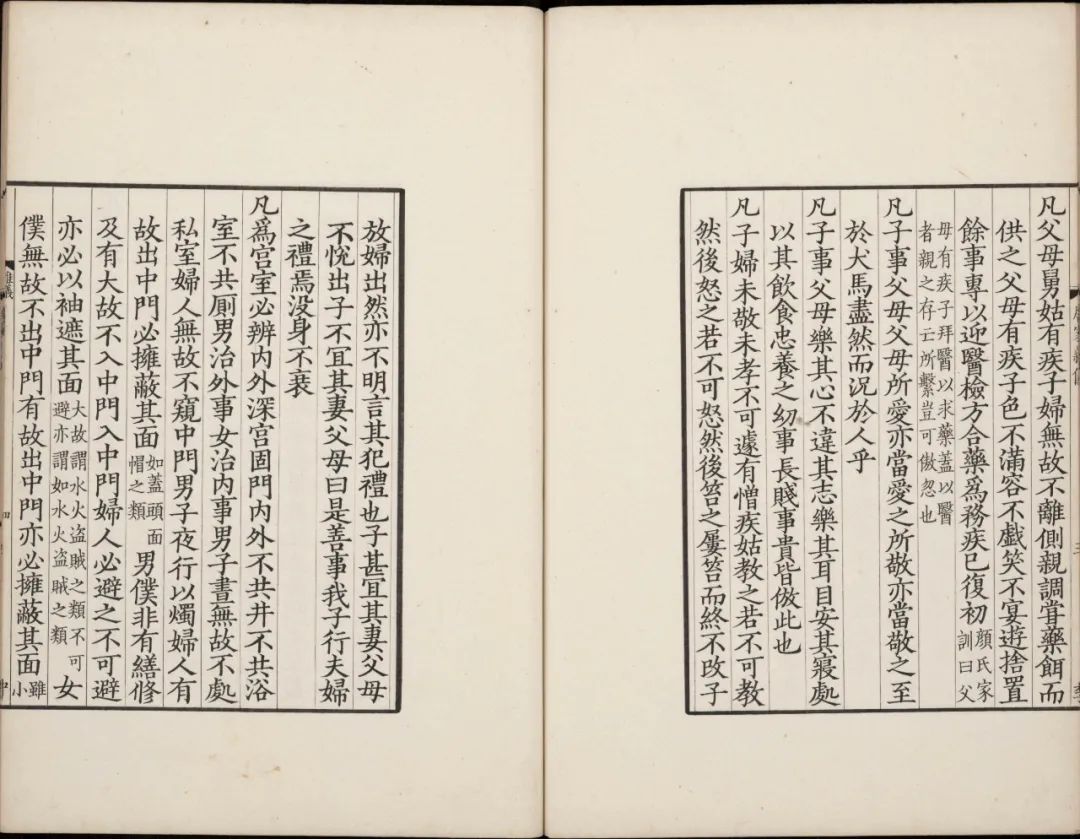 凡父母舅姑有疾子婦無故不離側親調甞藥餌而
供之父母有疾子色不滿容不戲笑不宴遊捨置
餘事專以迎醫檢方合藥爲務疾已復初顔氏家訓曰父
母有疾子拜醫以求藥蓋以醫
者親之存亡所繫豈可傲忽也
凡子事父母父母所愛亦當愛之所敬亦當敬之至
於犬馬盡然而況於人乎
凡子事父母樂其心不違其志樂其耳目安其寢處
以其飲食忠養之幼事長賤事貴皆倣此也
凡子婦未敬未孝不可遽有憎疾姑教之若不可教
然後怒之若不可怒然後笞之屢笞而終不改子
放婦出然亦不明言其犯禮也子甚宜其妻父母
不悅出子不宜其妻父母曰是善事我子行夫婦
之禮焉没身不衰
凡爲宫室必辨内外深宫固門内外不共井不共浴
室不共厠男治外事女治内事男子晝無故不處
私室婦人無故不窺中門男子夜行以燭婦人有
故出中門必擁蔽其面如蓋頭面帽之類男僕非有繕修
及有大故不入中門入中門婦人必避之不可避
亦必以袖遮其面大故謂水火盗賊之類不可避亦謂如水火盗賊之類女
僕無故不出中門有故出中門亦必擁蔽其面雖小